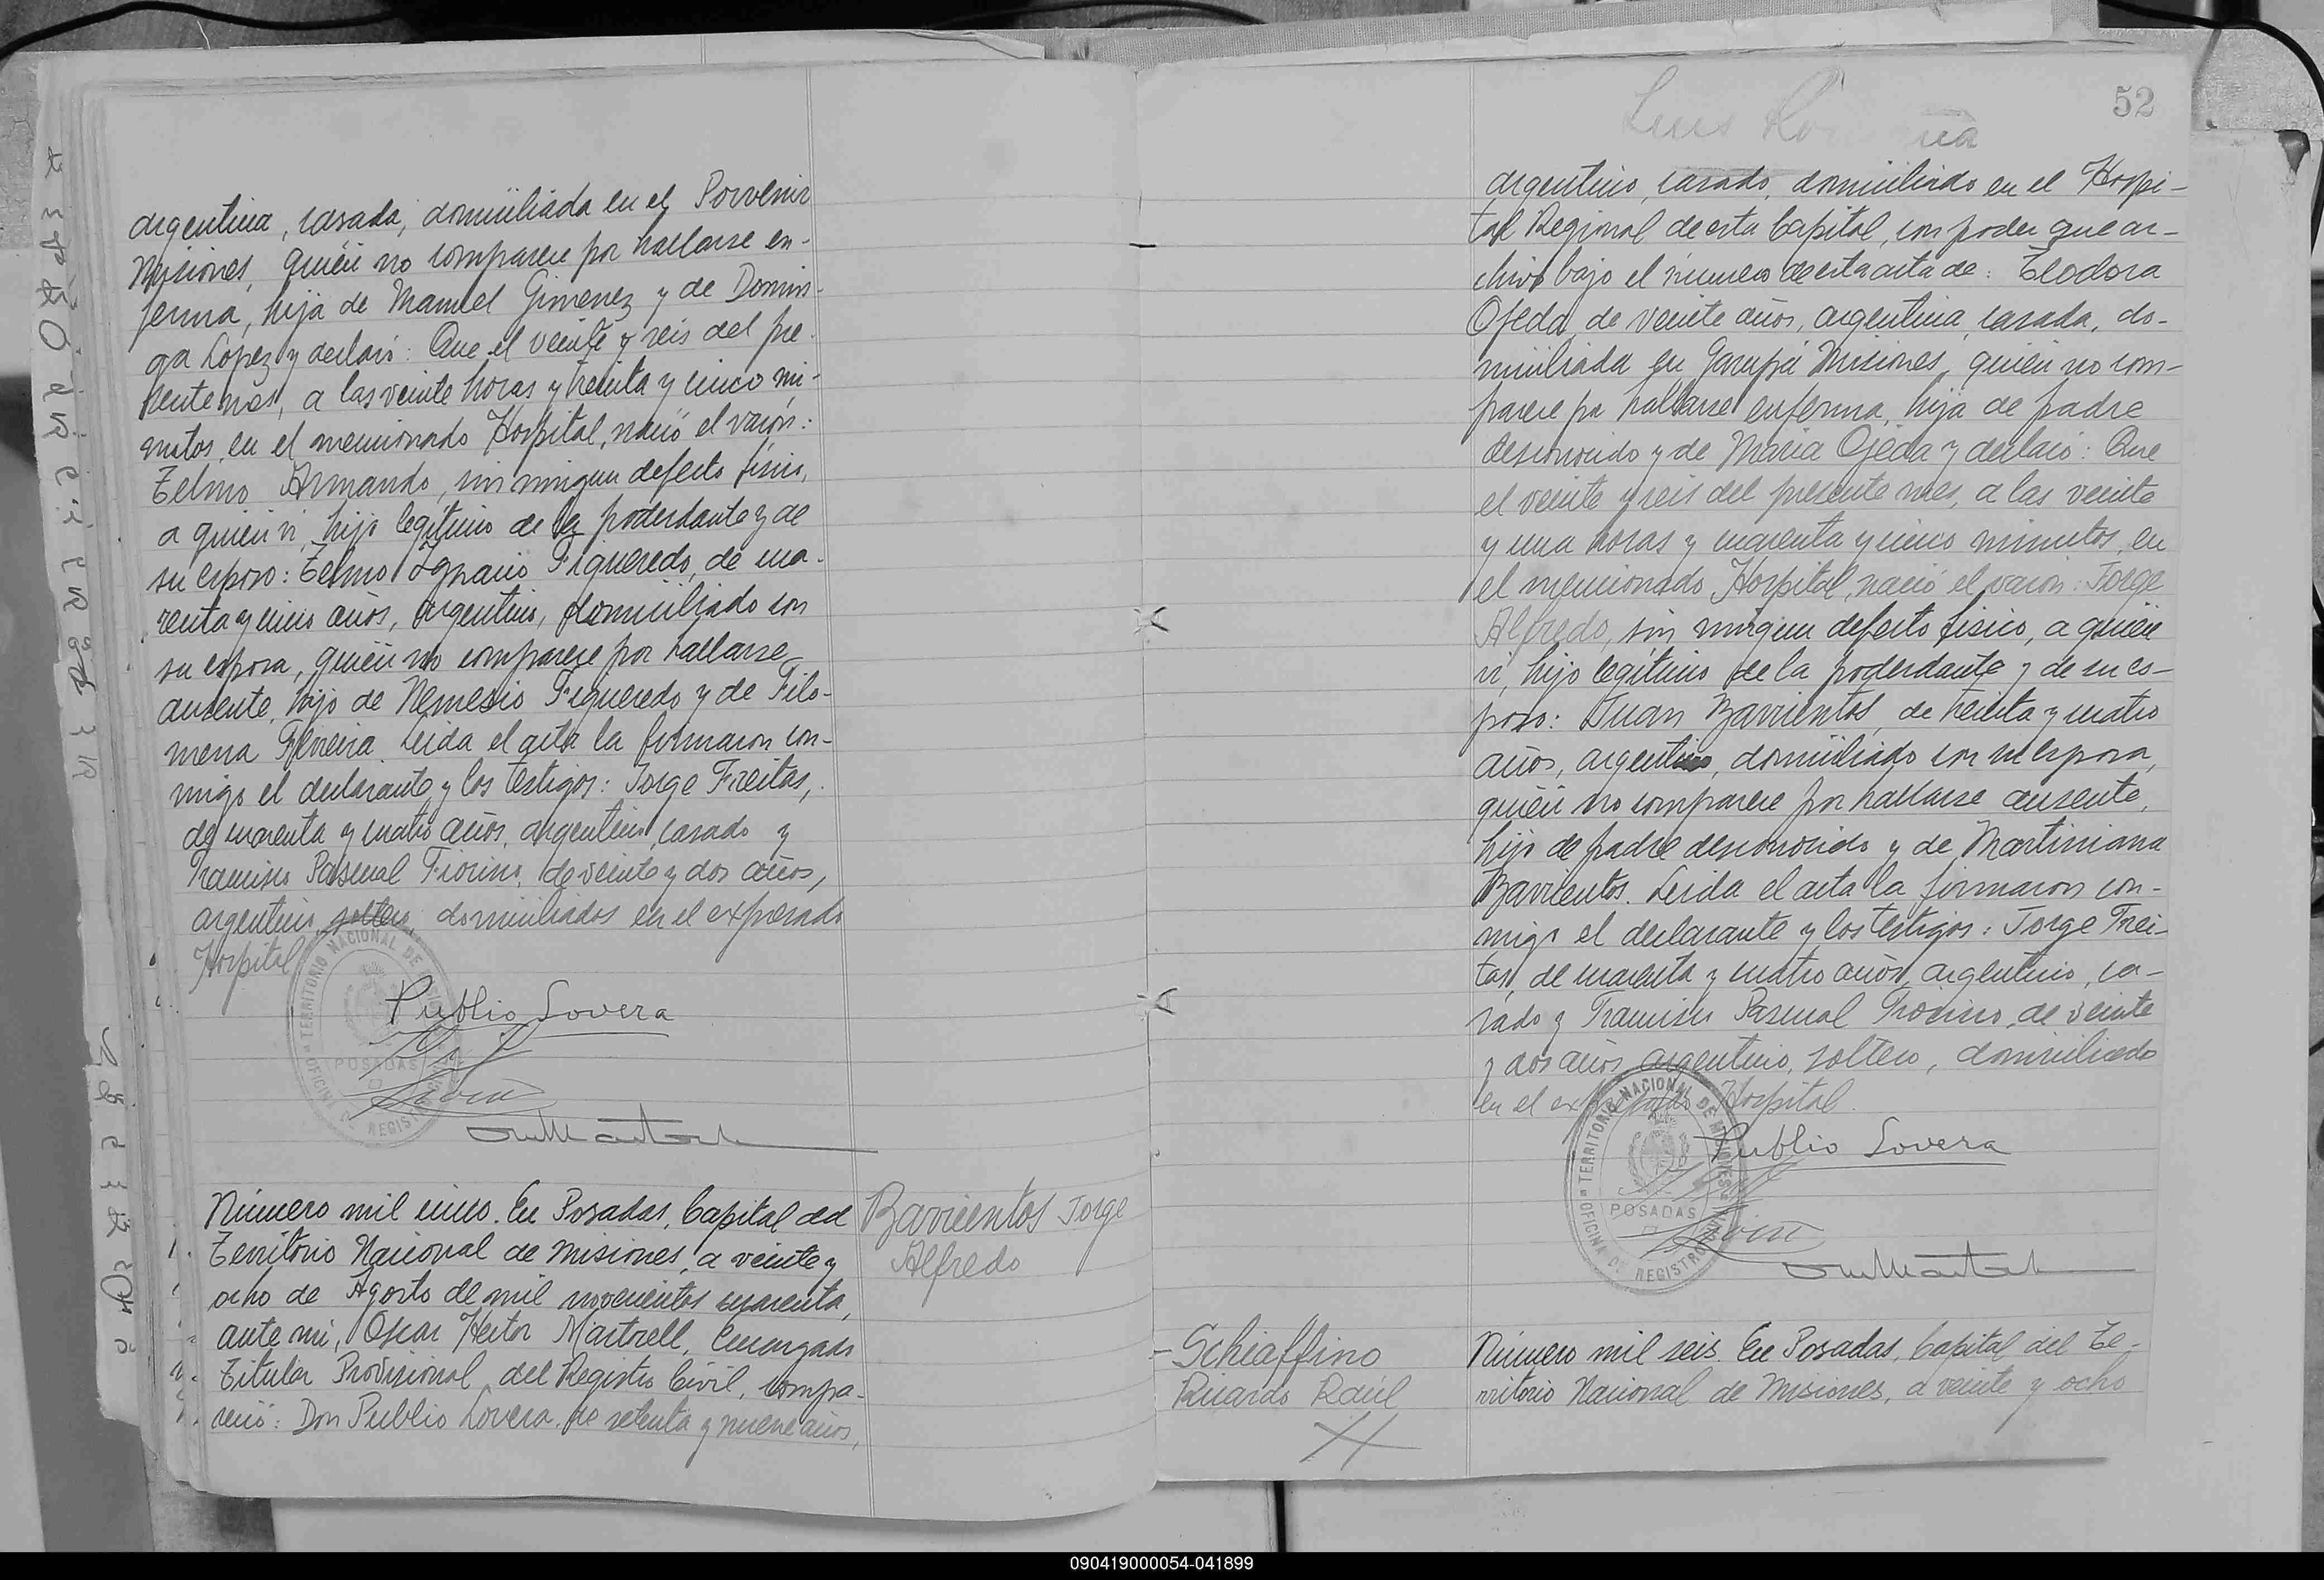 argentina, casada, domiciliada en el Porvenir
Misiones, quién no comparece por hallarse en-
ferma, hija de Manuel Gimenez y de Domin-
ga Lopez y declaró: Que el veinte y seis del pre-
sente mes, a las veinte horas y treinta y cinco mi-
nutos, en el mencionado Hospital, nació el varón:
Telmo Armando, sin ningun defecto físico,
a quien ví, hijo legítimo de la poderdante y de
su esposo: Telmo Ignacio Figueredo, de cua-
renta y cinco años, argentino, domiciliado con
su esposa, quién no comparece por hallarse
ausente, hijo de Nemesio Figueredo y de Filo-
mena Ferreira. Leida el acta la firmaron con-
migo el declarante y los testigos: Jorge Freitas,
de cuarenta y cuatro años, argentino, casado y
Francisco Pascual Fiorino, de veinte y dos años,
argentino, soltero, domiciliados en el expresado
Hospital
TERRITORIO NACIONAL DE MISIONES
OFICINA DE REGISTRO CIVIL
POSADAS
Publio Lovera
Número mil cinco. En Posadas, Capital del
Territorio Nacional de Misiones, a veinte y
ocho de Agosto de mil novecientos cuarenta,
ante mí, Oscar Hector Martorell, Encargado
Titular Provisional del Registro Civil, compa-
reció: Don Publio Lovera, de setenta y nueve años,
Barrientos Jorge
Alfredo
52
Luis
argentino, casado, domiciliado en el Hospi-
tal Regional de esta Capital, con poder que ar-
chivo bajo el número de esta acta de: Teodora
Ojeda, de veinte años, argentina, casada, do-
miciliada en Garupá Misiones, quién no com-
parece por hallarse enferma, hija de padre
desconocido y de Maria Ojeda y declaró: Que
el veinte y seis del presente mes, a las veinte
y una horas y cuarenta y cinco minutos, en
el mencionado Hospital, nació el varón: Jorge
Alfredo, sin ningun defecto físico, a quién
ví, hijo legítimo de la poderdante y de su es-
poso: Juan Barrientos, de treinta y cuatro
años, argentino, domiciliado con su esposa,
quién no comparece por hallarse ausente,
hijo de padre desconocido y de Martiniana
Barrientos. Leida el acta la firmaron con-
migo el declarante y los testigos: Jorge Frei-
tas, de cuarenta y cuatro años, argentino, ca-
sado y Francisco Pascual Fiorino, de veinte
y dos años, argentino, soltero, domiciliado
en el expresado Hospital.
TERRITORIO NACIONAL DE MISIONES
OFICINA DE REGISTRO CIVIL
POSADAS
Publio Lovera
Schiaffino
Ricardo Raúl
Número mil seis. En Posadas, Capital del Te-
rritorio Nacional de Misiones, a veinte y ocho
090419000054-041899